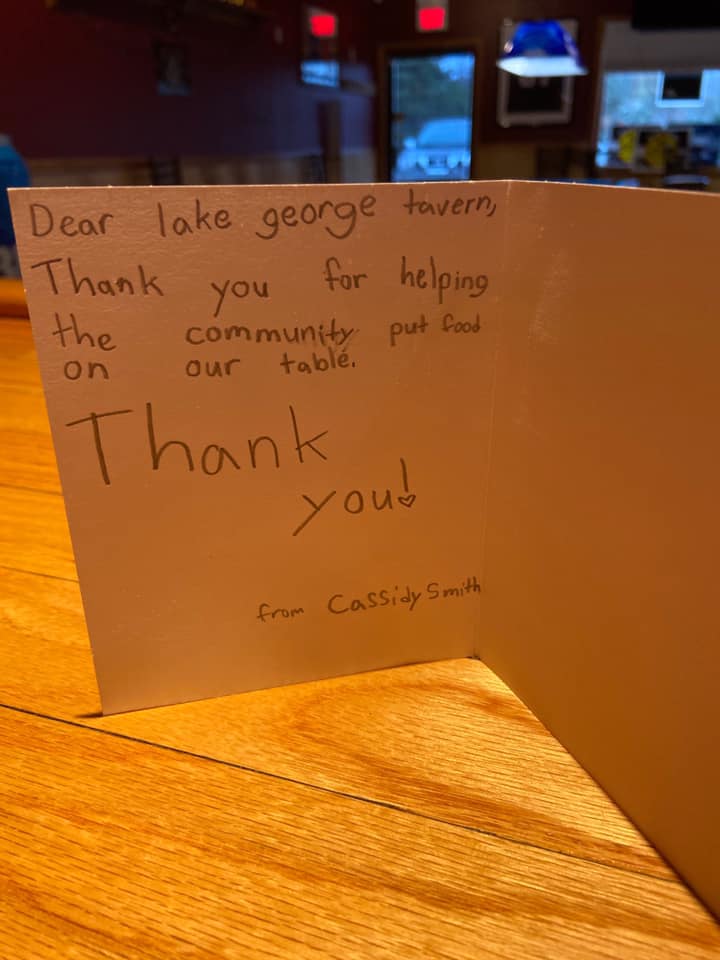 Dear lake george tavern,
Thank you for helping
the community put food
on our table.
Thank
you!
from Cassidy Smith